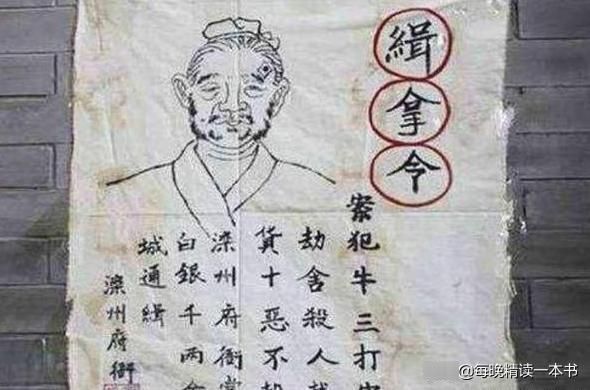 緝拿令
案犯牛三打
劫舍殺人
貨十惡不
滦州府衙賞
白銀千兩全
城通緝
滦州府衙
@每晚精读一本书